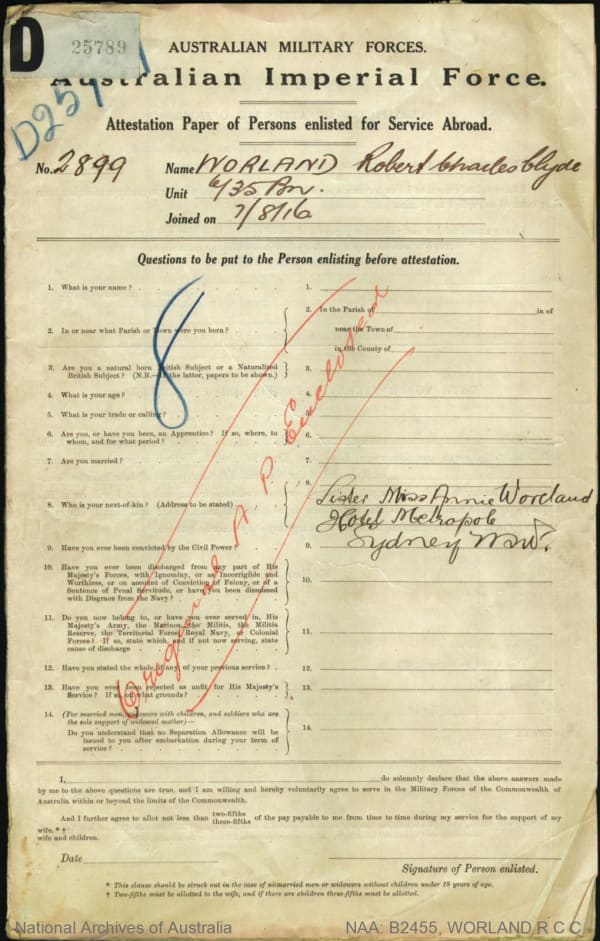 D 25789
D257
AUSTRALIAN MILITARY FORCES.
Australian Imperial Force.
Attestation Paper of Persons enlisted for Service Abroad.
No. 2899 Name WORLAND Robert Charles Clyde
Unit 6/35 Bn.
Joined on 7/8/16
Questions to be put to the Person enlisting before attestation.
8
Original A. P. Enclosed
1. What is your name? 1.
2. In or near what Parish or Town were you born? 2. In the Parish of in or
near the Town of
in the County of
3. Are you a natural born British Subject or a Naturalised
British Subject? (N.B.—If the latter, papers to be shown.) 3.
4. What is your age? 4.
5. What is your trade or calling? 5.
6. Are you, or have you been, an Apprentice? If so, where, to
whom, and for what period? 6.
7. Are you married? 7.
8. Who is your next-of-kin? (Address to be stated) 8. Sister Miss Annie Worland
Hotel Metropole
Sydney NSW.
9. Have you ever been convicted by the Civil Power? 9.
10. Have you ever been discharged from any part of His
Majesty's Forces, with Ignominy, or as Incorrigible and
Worthless, or on account of Conviction of Felony, or of a
Sentence of Penal Servitude, or have you been dismissed
with Disgrace from the Navy? 10.
11. Do you now belong to, or have you ever served in, His
Majesty's Army, the Marines, the Militia, the Militia
Reserve, the Territorial Force, Royal Navy, or Colonial
Forces? If so, state which, and if not now serving, state
cause of discharge 11.
12. Have you stated the whole, if any, of your previous service? 12.
13. Have you ever been rejected as unfit for His Majesty's
Service? If so, on what grounds? 13.
14. (For married men, widowers with children, and soldiers who are
the sole support of widowed mother)—
Do you understand that no Separation Allowance will be
issued to you after embarkation during your term of
service? 14.
I, do solemnly declare that the above answers made
by me to the above questions are true, and I am willing and hereby voluntarily agree to serve in the Military Forces of the Commonwealth of
Australia within or beyond the limits of the Commonwealth.
And I further agree to allot not less than two-fifths three-fifths of the pay payable to me from time to time during my service for the support of my
wife.*†
wife and children.
Date
Signature of Person enlisted.
* This clause should be struck out in the case of unmarried men or widowers without children under 18 years of age.
† Two-fifths must be allotted to the wife, and if there are children three-fifths must be allotted.
National Archives of Australia NAA: B2455, WORLAND R C C